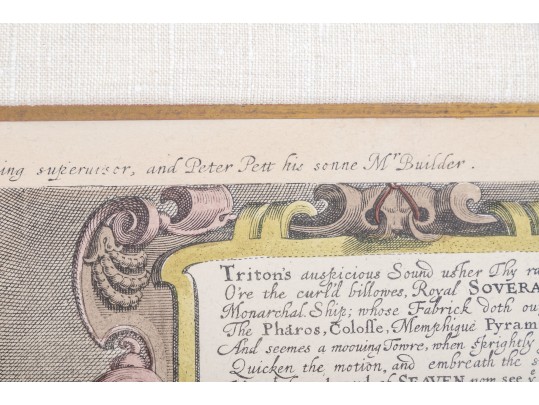 ing superuisor, and Peter Pett his sonne Mr Builder.
Triton's auspicious Sound usher Thy ra
O're the curl'd billowes, Royal SOVERA
Monarchal Ship; whose Fabrick doth ou
The Pharos, Colosse, Memphique Pyram
And seemes a mooving Towre, when sprightly
Quicken the motion, and embreath the s
SEAVEN now see